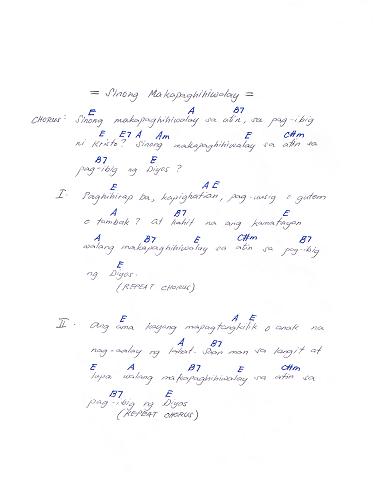 = Sinong Makapaghihiwalay =
E A B7
CHORUS: Sinong makapaghihiwalay sa atin, sa pag-ibig
E E7 A Am E C#m
ni Kristo? Sinong makapaghihiwalay sa atin sa
B7 E
pag-ibig ng Diyos?
E A E
I. Paghihirap ba, kapighatian, pag-uusig o gutom
A B7 E
o tambak? At kahit na ang kamatayan
A B7 E C#m B7
walang makapaghihiwalay sa atin sa pag-ibig
E
ng Diyos.
(REPEAT CHORUS)
E A E
II. Ang ama kayang mapagtangkilik o anak na
A B7
nag-aalay ng lahat. Saan man sa langit at
E A B7 E C#m
lupa walang makapaghihiwalay sa atin sa
B7 E
pag-ibig ng Diyos
(REPEAT CHORUS)